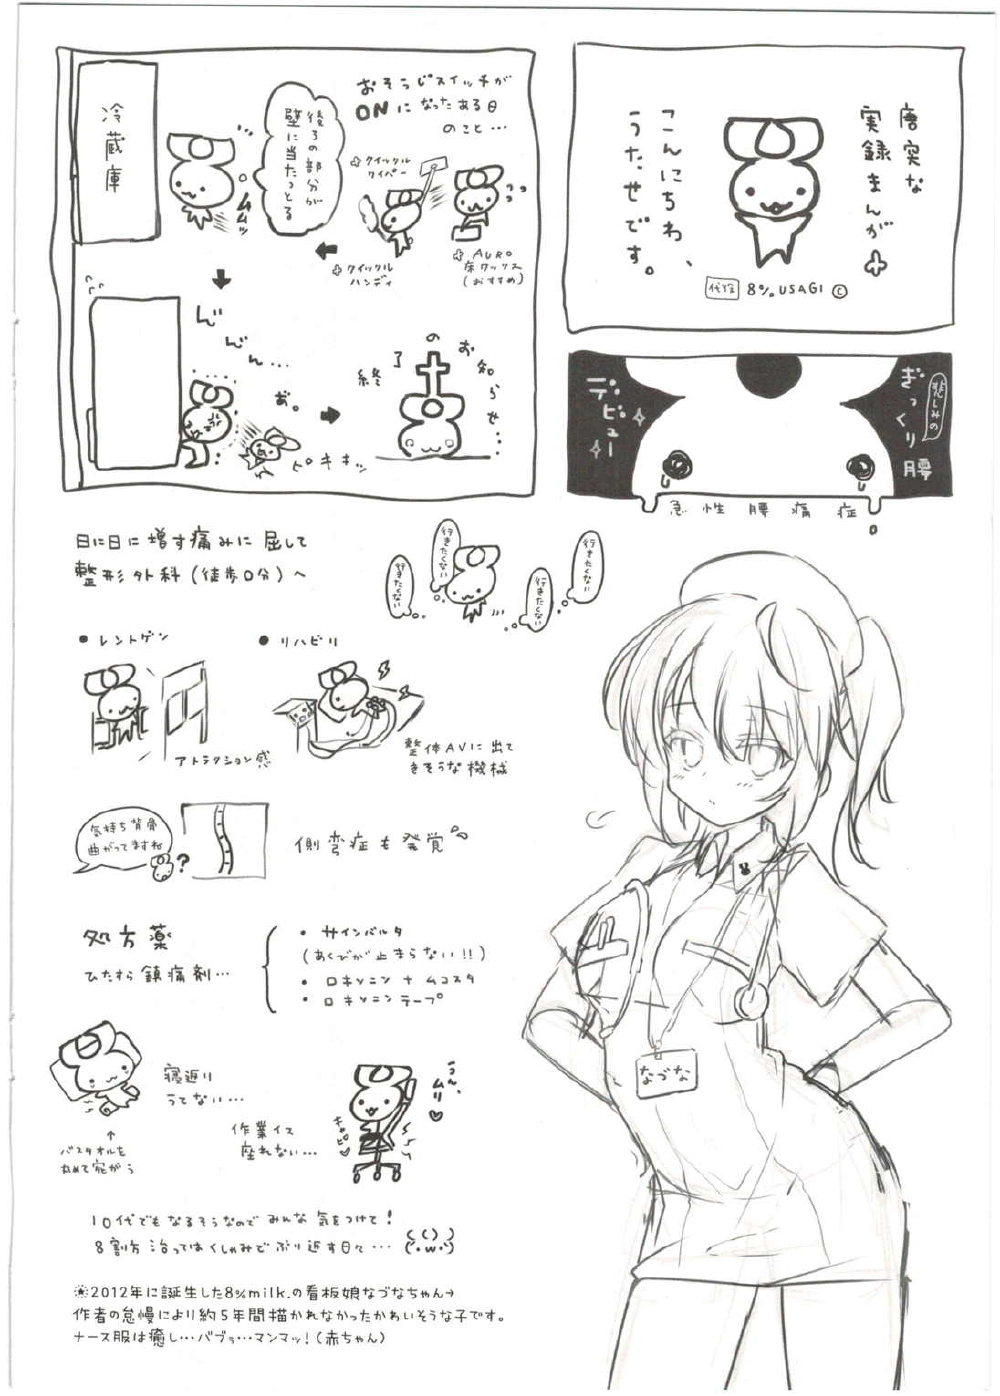 唐突な
実録まんが
こんにちわ、
うたせです。
代役 8% USAGI ©
おそうじスイッチが
ONになったある日
のこと…
クイックル
ワイパー
クイックル
ハンディ
AURO
床ワックス
(おすすめ)
後ろの部分が
壁に当たっとる
ムムッ
冷蔵庫
んんんん…
あ。
ピキキッ
終了のお知らせ…
悲しみの
ぎっくり腰
デビュー
急性腰痛症
日に日に増す痛みに屈して
整形外科(徒歩0分)へ
行きたくない
行きたくない
行きたくない
行きたくない
●レントゲン
アトラクション感
●リハビリ
整体AVに出て
きそうな機械
気持ち背骨
曲がってますね
?
側弯症も発覚
処方薬
ひたすら鎮痛剤…
・サインバルタ
(あくびが止まらない!!)
・ロキソニン+ムコスタ
・ロキソニンテープ
寝返り
うてない…
↑
バスタオルを
丸めて宛がう
作業イス
座れない…
キャピ♡
うん、
ムリ♡
10代でもなるそうなのでみんな気をつけて!
8割方治ってはくしゃみでぶり返す日々…
※2012年に誕生した8%milk.の看板娘なづなちゃん→
作者の怠慢により約5年間描かれなかったかわいそうな子です。
ナース服は癒し…バブゥ…マンマッ!(赤ちゃん)
なづな